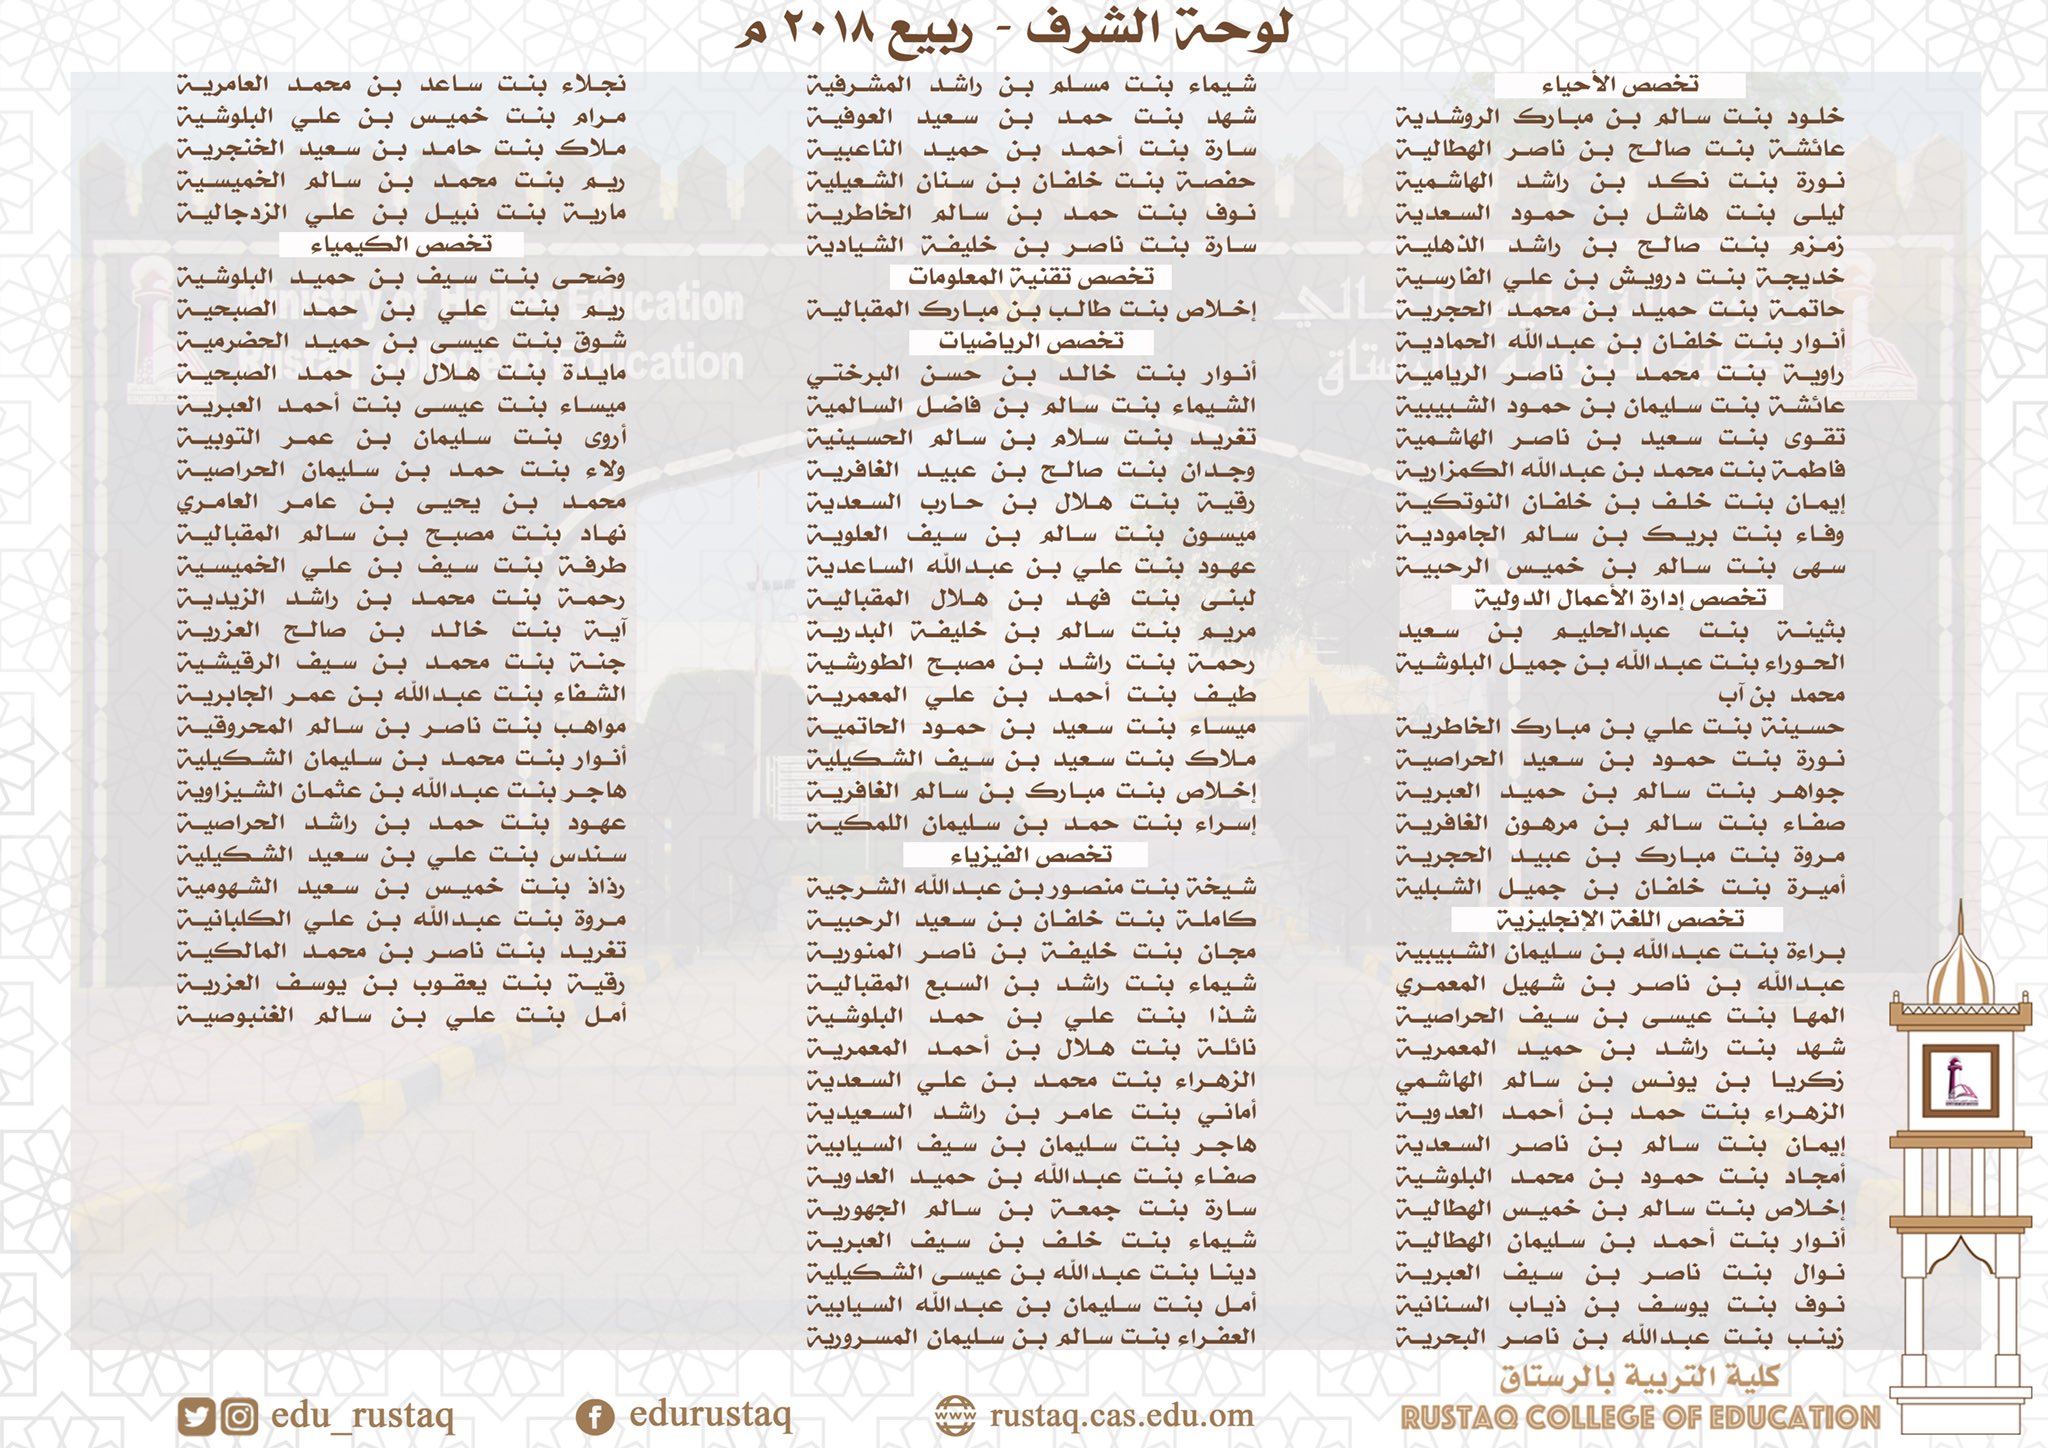 لوحة الشرف - ربيع ٢٠١٨ م
تخصص الأحياء
خلود بنت سالم بن مبارك الروشدية
عائشة بنت صالح بن ناصر الهطالية
نورة بنت نكد بن راشد الهاشمية
ليلى بنت هاشل بن حمود السعدية
زمزم بنت صالح بن راشد الذهلية
خديجة بنت درويش بن علي الفارسية
حاتمة بنت حميد بن محمد الحجرية
أنوار بنت خلفان بن عبدالله الحمادية
راوية بنت محمد بن ناصر الريامية
عائشة بنت سليمان بن حمود الشبيبية
تقوى بنت سعيد بن ناصر الهاشمية
فاطمة بنت محمد بن عبدالله الكمزارية
إيمان بنت خلف بن خلفان النوتكية
وفاء بنت بريك بن سالم الجامودية
سهى بنت سالم بن خميس الرحبية
تخصص إدارة الأعمال الدولية
بثينة بنت عبدالحليم بن سعيد
الحوراء بنت عبدالله بن جميل البلوشية
محمد بن آب
حسينة بنت علي بن مبارك الخاطرية
نورة بنت حمود بن سعيد الحراصية
جواهر بنت سالم بن حميد العبرية
صفاء بنت سالم بن مرهون الغافرية
مروة بنت مبارك بن عبيد الحجرية
أميرة بنت خلفان بن جميل الشبلية
تخصص اللغة الإنجليزية
براءة بنت عبدالله بن سليمان الشبيبية
عبدالله بن ناصر بن شهيل المعمري
المها بنت عيسى بن سيف الحراصية
شهد بنت راشد بن حميد المعمرية
زكريا بن يونس بن سالم الهاشمي
الزهراء بنت حمد بن أحمد العدوية
إيمان بنت سالم بن ناصر السعدية
أمجاد بنت حمود بن محمد البلوشية
إخلاص بنت سالم بن خميس الهطالية
أنوار بنت أحمد بن سليمان الهطالية
نوال بنت ناصر بن سيف العبرية
نوف بنت يوسف بن ذياب السنانية
زينب بنت عبدالله بن ناصر البحرية
شيماء بنت مسلم بن راشد المشرفية
شهد بنت حمد بن سعيد العوفية
سارة بنت أحمد بن حميد الناعبية
حفصة بنت خلفان بن سنان الشعيلية
نوف بنت حمد بن سالم الخاطرية
سارة بنت ناصر بن خليفة الشيادية
تخصص تقنية المعلومات
إخلاص بنت طالب بن مبارك المقبالية
تخصص الرياضيات
أنوار بنت خالد بن حسن البرختي
الشيماء بنت سالم بن فاضل السالمية
تغريد بنت سلام بن سالم الحسينية
وجدان بنت صالح بن عبيد الغافرية
رقية بنت هلال بن حارب السعدية
ميسون بنت سالم بن سيف العلوية
عهود بنت علي بن عبدالله الساعدية
لبنى بنت فهد بن هلال المقبالية
مريم بنت سالم بن خليفة البدرية
رحمة بنت راشد بن مصبح الطورشية
طيف بنت أحمد بن علي المعمرية
ميساء بنت سعيد بن حمود الحاتمية
ملاك بنت سعيد بن سيف الشكيلية
إخلاص بنت مبارك بن سالم الغافرية
إسراء بنت حمد بن سليمان اللمكية
تخصص الفيزياء
شيخة بنت منصور بن عبدالله الشرجية
كاملة بنت خلفان بن سعيد الرحبية
مجان بنت خليفة بن ناصر المنورية
شيماء بنت راشد بن السبع المقبالية
شذا بنت علي بن حمد البلوشية
نائلة بنت هلال بن أحمد المعمرية
الزهراء بنت محمد بن علي السعدية
أماني بنت عامر بن راشد السعيدية
هاجر بنت سليمان بن سيف السيابية
صفاء بنت عبدالله بن حميد العدوية
سارة بنت جمعة بن سالم الجهورية
شيماء بنت خلف بن سيف العبرية
دينا بنت عبدالله بن عيسى الشكيلية
أمل بنت سليمان بن عبدالله السيابية
العفراء بنت سالم بن سليمان المسرورية
نجلاء بنت ساعد بن محمد العامرية
مرام بنت خميس بن علي البلوشية
ملاك بنت حامد بن سعيد الخنجرية
ريم بنت محمد بن سالم الخميسية
مارية بنت نبيل بن علي الزدجالية
تخصص الكيمياء
وضحى بنت سيف بن حميد البلوشية
ريم بنت علي بن حمد الصبحية
شوق بنت عيسى بن حميد الحضرمية
مايدة بنت هلال بن حمد الصبحية
ميساء بنت عيسى بنت أحمد العبرية
أروى بنت سليمان بن عمر التوبية
ولاء بنت حمد بن سليمان الحراصية
محمد بن يحيى بن عامر العامري
نهاد بنت مصبح بن سالم المقبالية
طرفة بنت سيف بن علي الخميسية
رحمة بنت محمد بن راشد الزيدية
آية بنت خالد بن صالح العزرية
جنة بنت محمد بن سيف الرقيشية
الشفاء بنت عبدالله بن عمر الجابرية
مواهب بنت ناصر بن سالم المحروقية
أنوار بنت محمد بن سليمان الشكيلية
هاجر بنت عبدالله بن عثمان الشيزاوية
عهود بنت حمد بن راشد الحراصية
سندس بنت علي بن سعيد الشكيلية
رذاذ بنت خميس بن سعيد الشهومية
مروة بنت عبدالله بن علي الكلبانية
تغريد بنت ناصر بن محمد المالكية
رقية بنت يعقوب بن يوسف العزرية
أمل بنت علي بن سالم الغنبوصية
Ministry of Higher Education
Rustaq College of Education
كلية التربية بالرستاق
RUSTAQ COLLEGE OF EDUCATION
rustaq.cas.edu.om
edurustaq
edu_rustaq